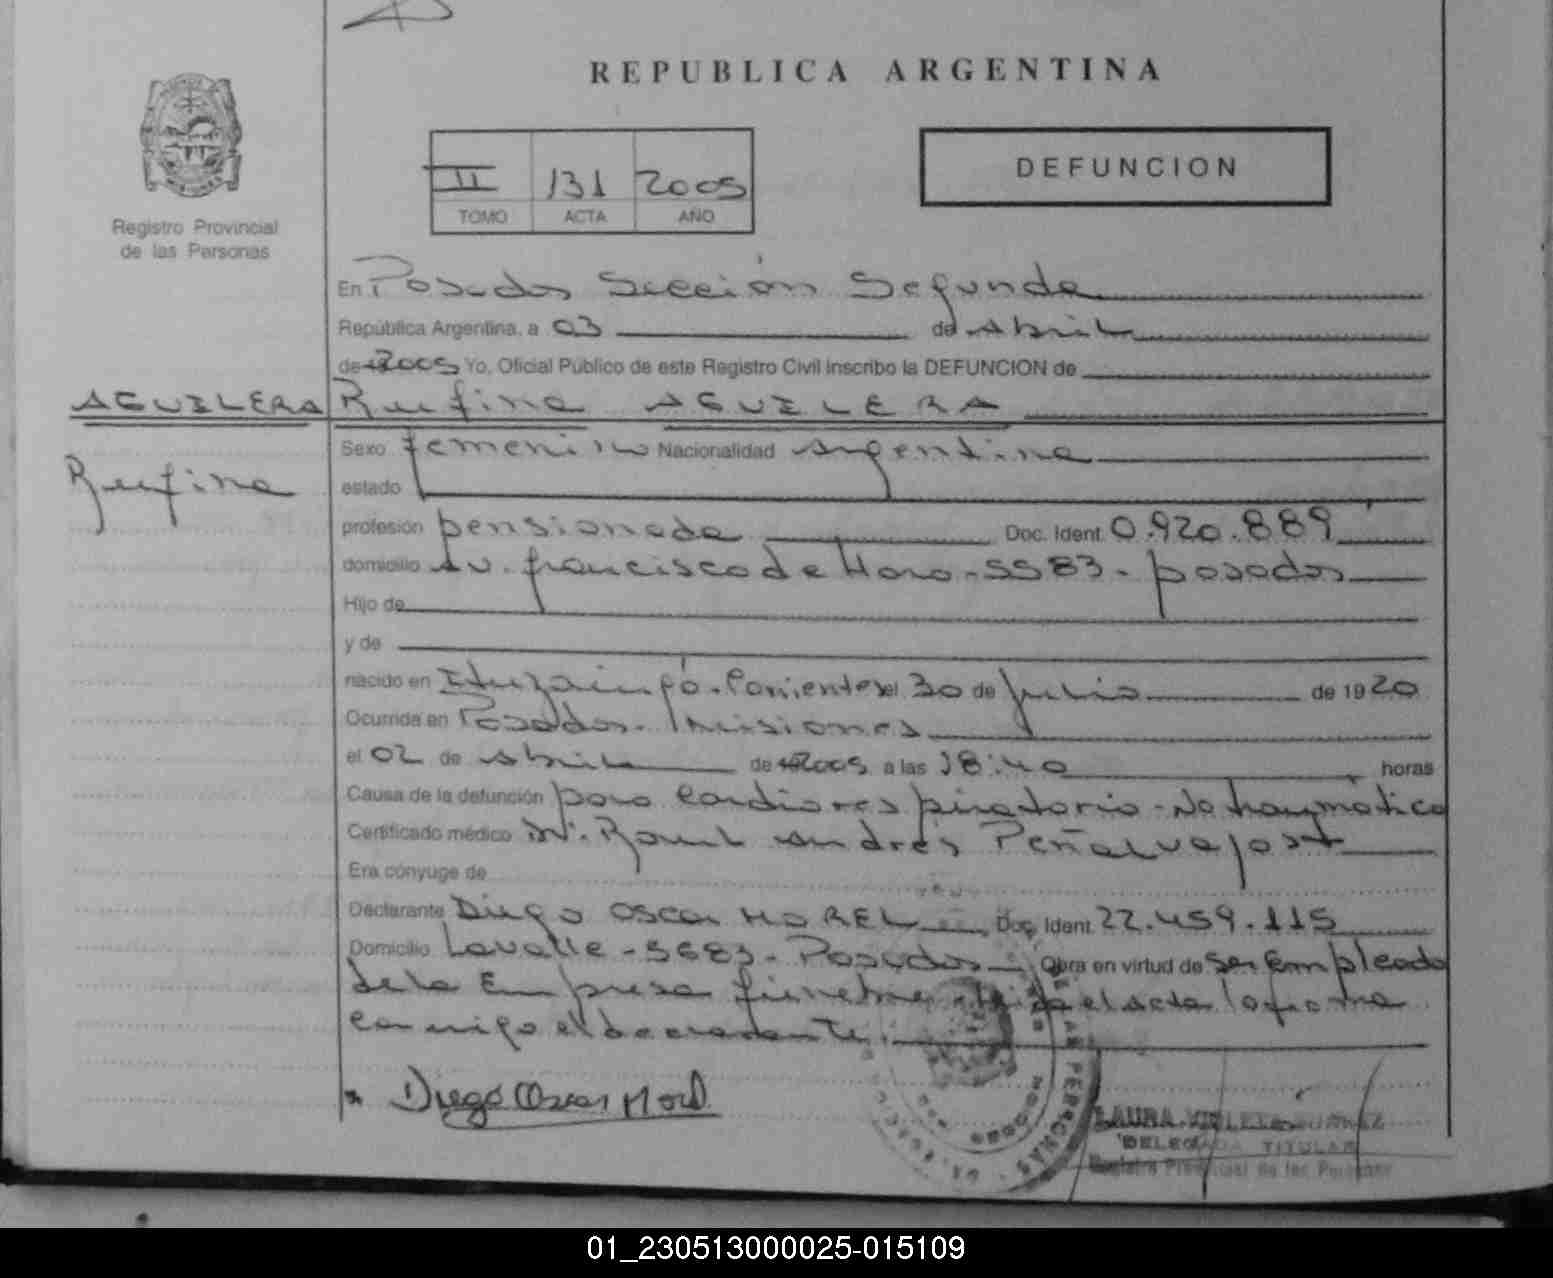 REPUBLICA ARGENTINA
Registro Provincial
de las Personas
II 131 2005
TOMO ACTA AÑO
DEFUNCION
En Posadas Sección Segunda
República Argentina, a 03 de Abril
de 2005 Yo, Oficial Público de este Registro Civil inscribo la DEFUNCION de
AGUILERA
Rufina
Rufina AGUILERA
Sexo femenino Nacionalidad Argentina
estado
profesión pensionada Doc. Ident. 0.920.889
domicilio Av. francisco de Haro - 5583 - posadas
Hijo de
y de
nacido en Ituzaingó - Corrientes el 30 de julio de 1920
Ocurrida en Posadas - Misiones
el 02 de Abril de 2005 a las 18:40 horas
Causa de la defunción paro cardiorespiratorio - No traumático
Certificado médico Dr. Raul Andrés
Era cónyuge de
Declarante Diego Oscar MOREL Doc. Ident. 22.459.115
Domicilio Lavalle - 5683 - Posadas Obra en virtud de ser Empleado
de la Empresa funebre el acta la firma
conmigo el declarante
Diego Oscar Morel
LAURA VIOLETA
DELEGADA TITULAR
Registro Provincial de las Personas
01_230513000025-015109